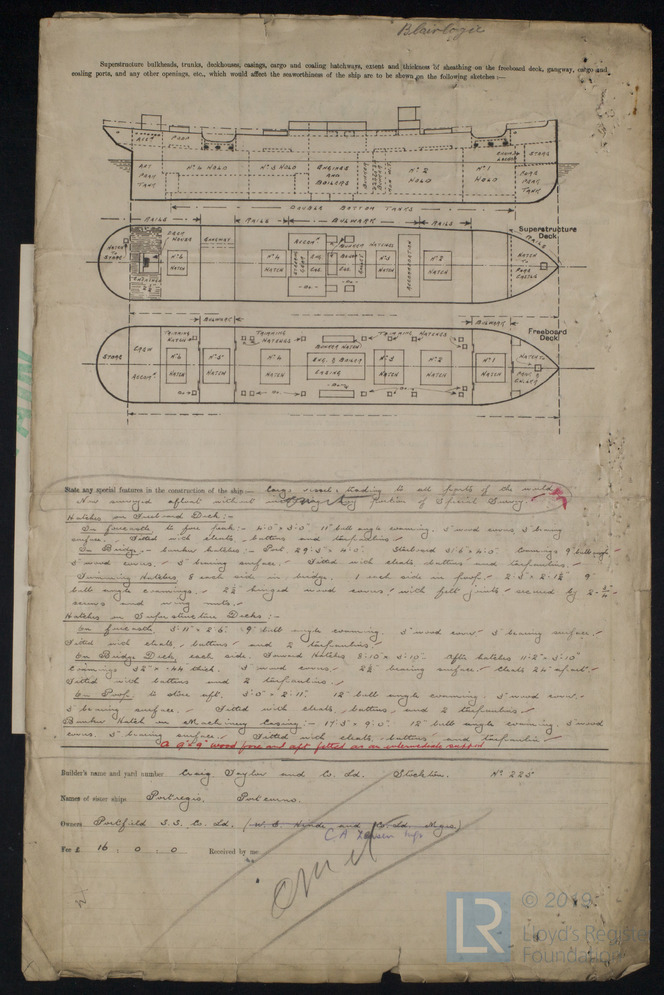 Blairlogie
Superstructure bulkheads, trunks, deckhouses, casings, cargo and coaling hatchways, extent and thickness of sheathing on the freeboard deck, gangway, cargo and
coaling ports, and any other openings, etc., which would affect the seaworthiness of the ship are to be shown on the following sketches :—
POOP
STORE
AFT PEAK TANK
No 4 HOLD
No 3 HOLD
ENGINES AND BOILERS
No 2 HOLD
No 1 HOLD
FORE PEAK TANK
DOUBLE BOTTOM TANKS
RAILS
RAILS
BULWARK
RAILS
Superstructure Deck
HATCH TO STORE
DECK HOUSE
GANGWAY
No 6 HATCH
No 4 HATCH
BUNKER HATCHES
No 3 HATCH
ACCOMMODATION
No 2 HATCH
RAILS
HATCH TO FORE CASTLE
BULWARK
BULWARK
Freeboard Deck
STORE
CREW ACCOMT
TRIMMING HATCH
No 6 HATCH
No 5 HATCH
TRIMMING HATCHES
No 4 HATCH
BUNKER HATCH
ENG. & BOILER CASING
TRIMMING HATCHES
No 3 HATCH
No 2 HATCH
No 1 HATCH
State any special features in the construction of the ship— Cargo vessel trading to all parts of the world
Now surveyed afloat without any portion of Special Survey.
Hatches on Freeboard Deck :-
In forecastle to fore peak :- 4'.0" x 3'.0" 11" bulb angle coaming. 3" wood covers 3" bearing
surface. Fitted with cleats, battens and tarpaulins
In Bridge - bunker hatches :- Port. 29'.3" x 4'.0" Starboard 31'.6" x 4'.0" Coamings 9" bulb angle
3" wood covers. 3" bearing surface. Fitted with cleats battens and tarpaulins.
Trimming Hatches 8 each side in bridge. 1 each side in poop. 9"
bulb angle coamings. 2½" hinged wood covers with felt joints secured by 2
screws and wing nuts.
Hatches on Superstructure Decks :-
On forecastle 9" bulb angle coaming. 3" wood cover 3" bearing surface.
Fitted with cleats, battens and 2 tarpaulins.
On Bridge Deck each side. Forward Hatches After hatches 11'.2" x 3'.10"
Coamings 32" x .44 thick. 3" wood covers. 2½ bearing surface. Cleats 24" apart.
Fitted with battens and 2 tarpaulins.
On Poop to store aft. 3'.0" x 2'.11". 12" bulb angle coaming. 3" wood cover.
3" bearing surface. Fitted with cleats, battens, and 2 tarpaulins
Bunker Hatch in Machinery Casing :- 17'.3" x 9'.3". 12" bulb angle coaming. 3" wood
covers. 3" bearing surface. Fitted with cleats, battens, and tarpaulin
A 9" x 9" wood fore and aft fitted as an intermediate support
Builder's name and yard number Craig Taylor and Co Ld. Stockton. No 225
Names of sister ships Portregis. Portcurno.
Owners Portfield S.S. Co. Ld. (W. E. Hinde and Co. Ld. Mgrs.)
Fee £ 16 : 0 : 0 Received by me
omit
LR
© 2019
Lloyd's Register
Foundation